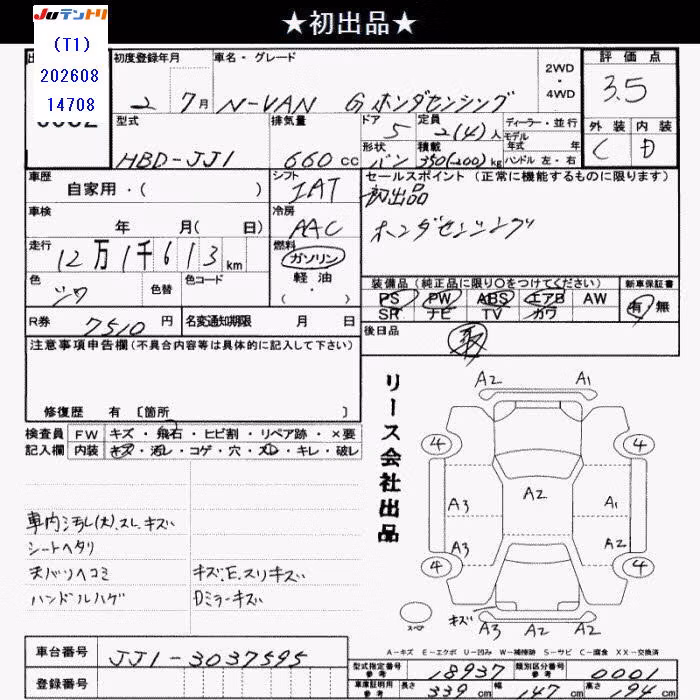 ★初出品★
JUテントリ
(T1)
202608
14708
初度登録年月 車名・グレード 2WD・4WD 評価点
2 7月 N-VAN G ホンダセンシング 3.5
型式 排気量 ドア 定員 ディーラー・並行 外装 内装
HBD-JJ1 660cc 5 2(4)人 モデル年式 年式 C D
形状 積載 ハンドル 左・右
バン 350(200)kg
車歴 シフト セールスポイント (正常に機能するものに限ります)
自家用・( ) IAT 初出品
車検 冷房
年 月( 日) AAC ホンダセンシング
走行 燃料
12万1千613km ガソリン
色 色替 色コード 軽油
シロ ・( )
装備品 (純正品に限り○をつけてください) 新車保証書
PS PW ABS エアB AW 有・無
SR ナビ TV カワ
R券 7510円 名変通知期限 月 日 後日品
取
注意事項申告欄(不具合内容等は具体的に記入して下さい)
修復歴 有 [箇所 ]
検査員 FW キズ・飛石・ヒビ割・リペア跡・×要
記入欄 内装 キズ・汚レ・コゲ・穴・スレ・キレ・破レ
リース会社出品
A2 A1
4 4
A3 A2 A1
A3 A2
4 4
キズ
スペア A3 A2 A2
車内汚レ(大).スレ.キズ
シートヘタリ
天バリヘコミ キズ.E.スリキズ
ハンドルハゲ Dミラーキズ
A-キズ E-エクボ U-凹み W-補修跡 S-サビ C-腐食 XX-交換済
車台番号 JJ1-3037595
登録番号
型式指定番号 参考 18937 類別区分番号 参考 0001
車庫証明用 参考 長さ 339cm 幅 147cm 高さ 194cm